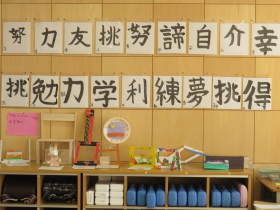 努力友挑努諦自介幸
挑勉力学利練夢挑得